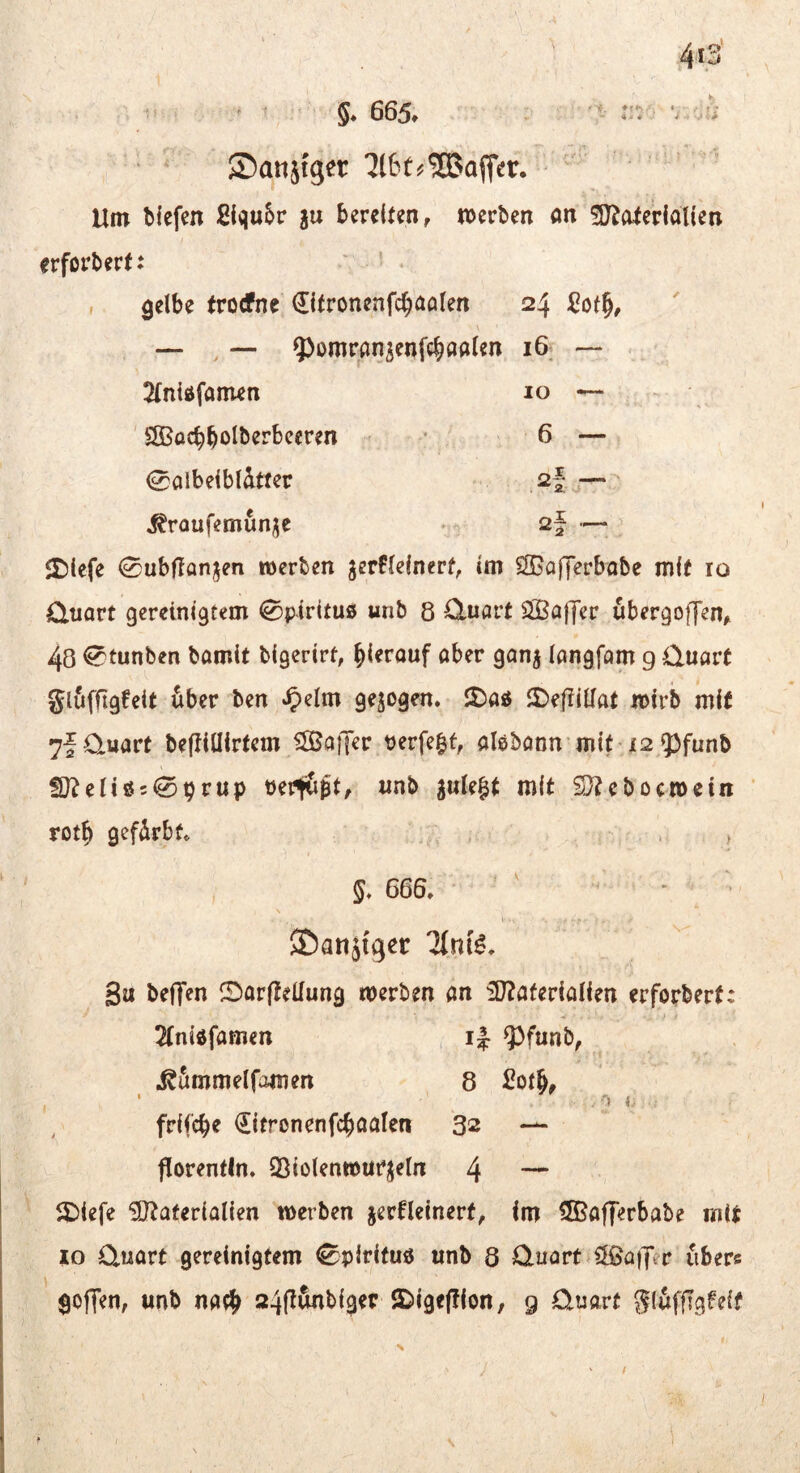 413
§. 665.
Danziger Abt-Wasser.
Um diesen Liquör zu bereiten, werden an Materialien
erfordert:
gelbe trockne Citronenschaalen 24 Loth,
— — Pomranzenschaalen 16 —
Anissamen 10 —
Wachholderbeeren 6 —
Salbeiblätter 2½ —
Krausemünze 2½ —
Diese Substanzen werden zerkleinert, im Wasserbade mit 10
Quart gereinigtem Spiritus und 8 Quart Wasser übergossen,
48 Stunden damit digerirt, hierauf aber ganz langsam 9 Quart
Flüssigkeit über den Helm gezogen. Das Destillat wird mit
7½ Quart destillirtem Wasser versetzt, alsdann mit 12 Pfund
Melis-Syrup versüßt, und zuletzt mit Medocwein
roth gefärbt.
§. 666.
Danziger Anis.
Zu dessen Darstellung werden an Materialien erfordert:
Anissamen 1¾ Pfund,
Kümmelsamen 8 Loth,
frische Citronenschaalen 32 —
florentin. Violenwurzeln 4 —
Diese Materialien werden zerkleinert, im Wasserbade mit
10 Quart gereinigtem Spiritus und 8 Quart Wasser über-
gossen, und nach 24stündiger Digestion, 9 Quart Flüssigkeit